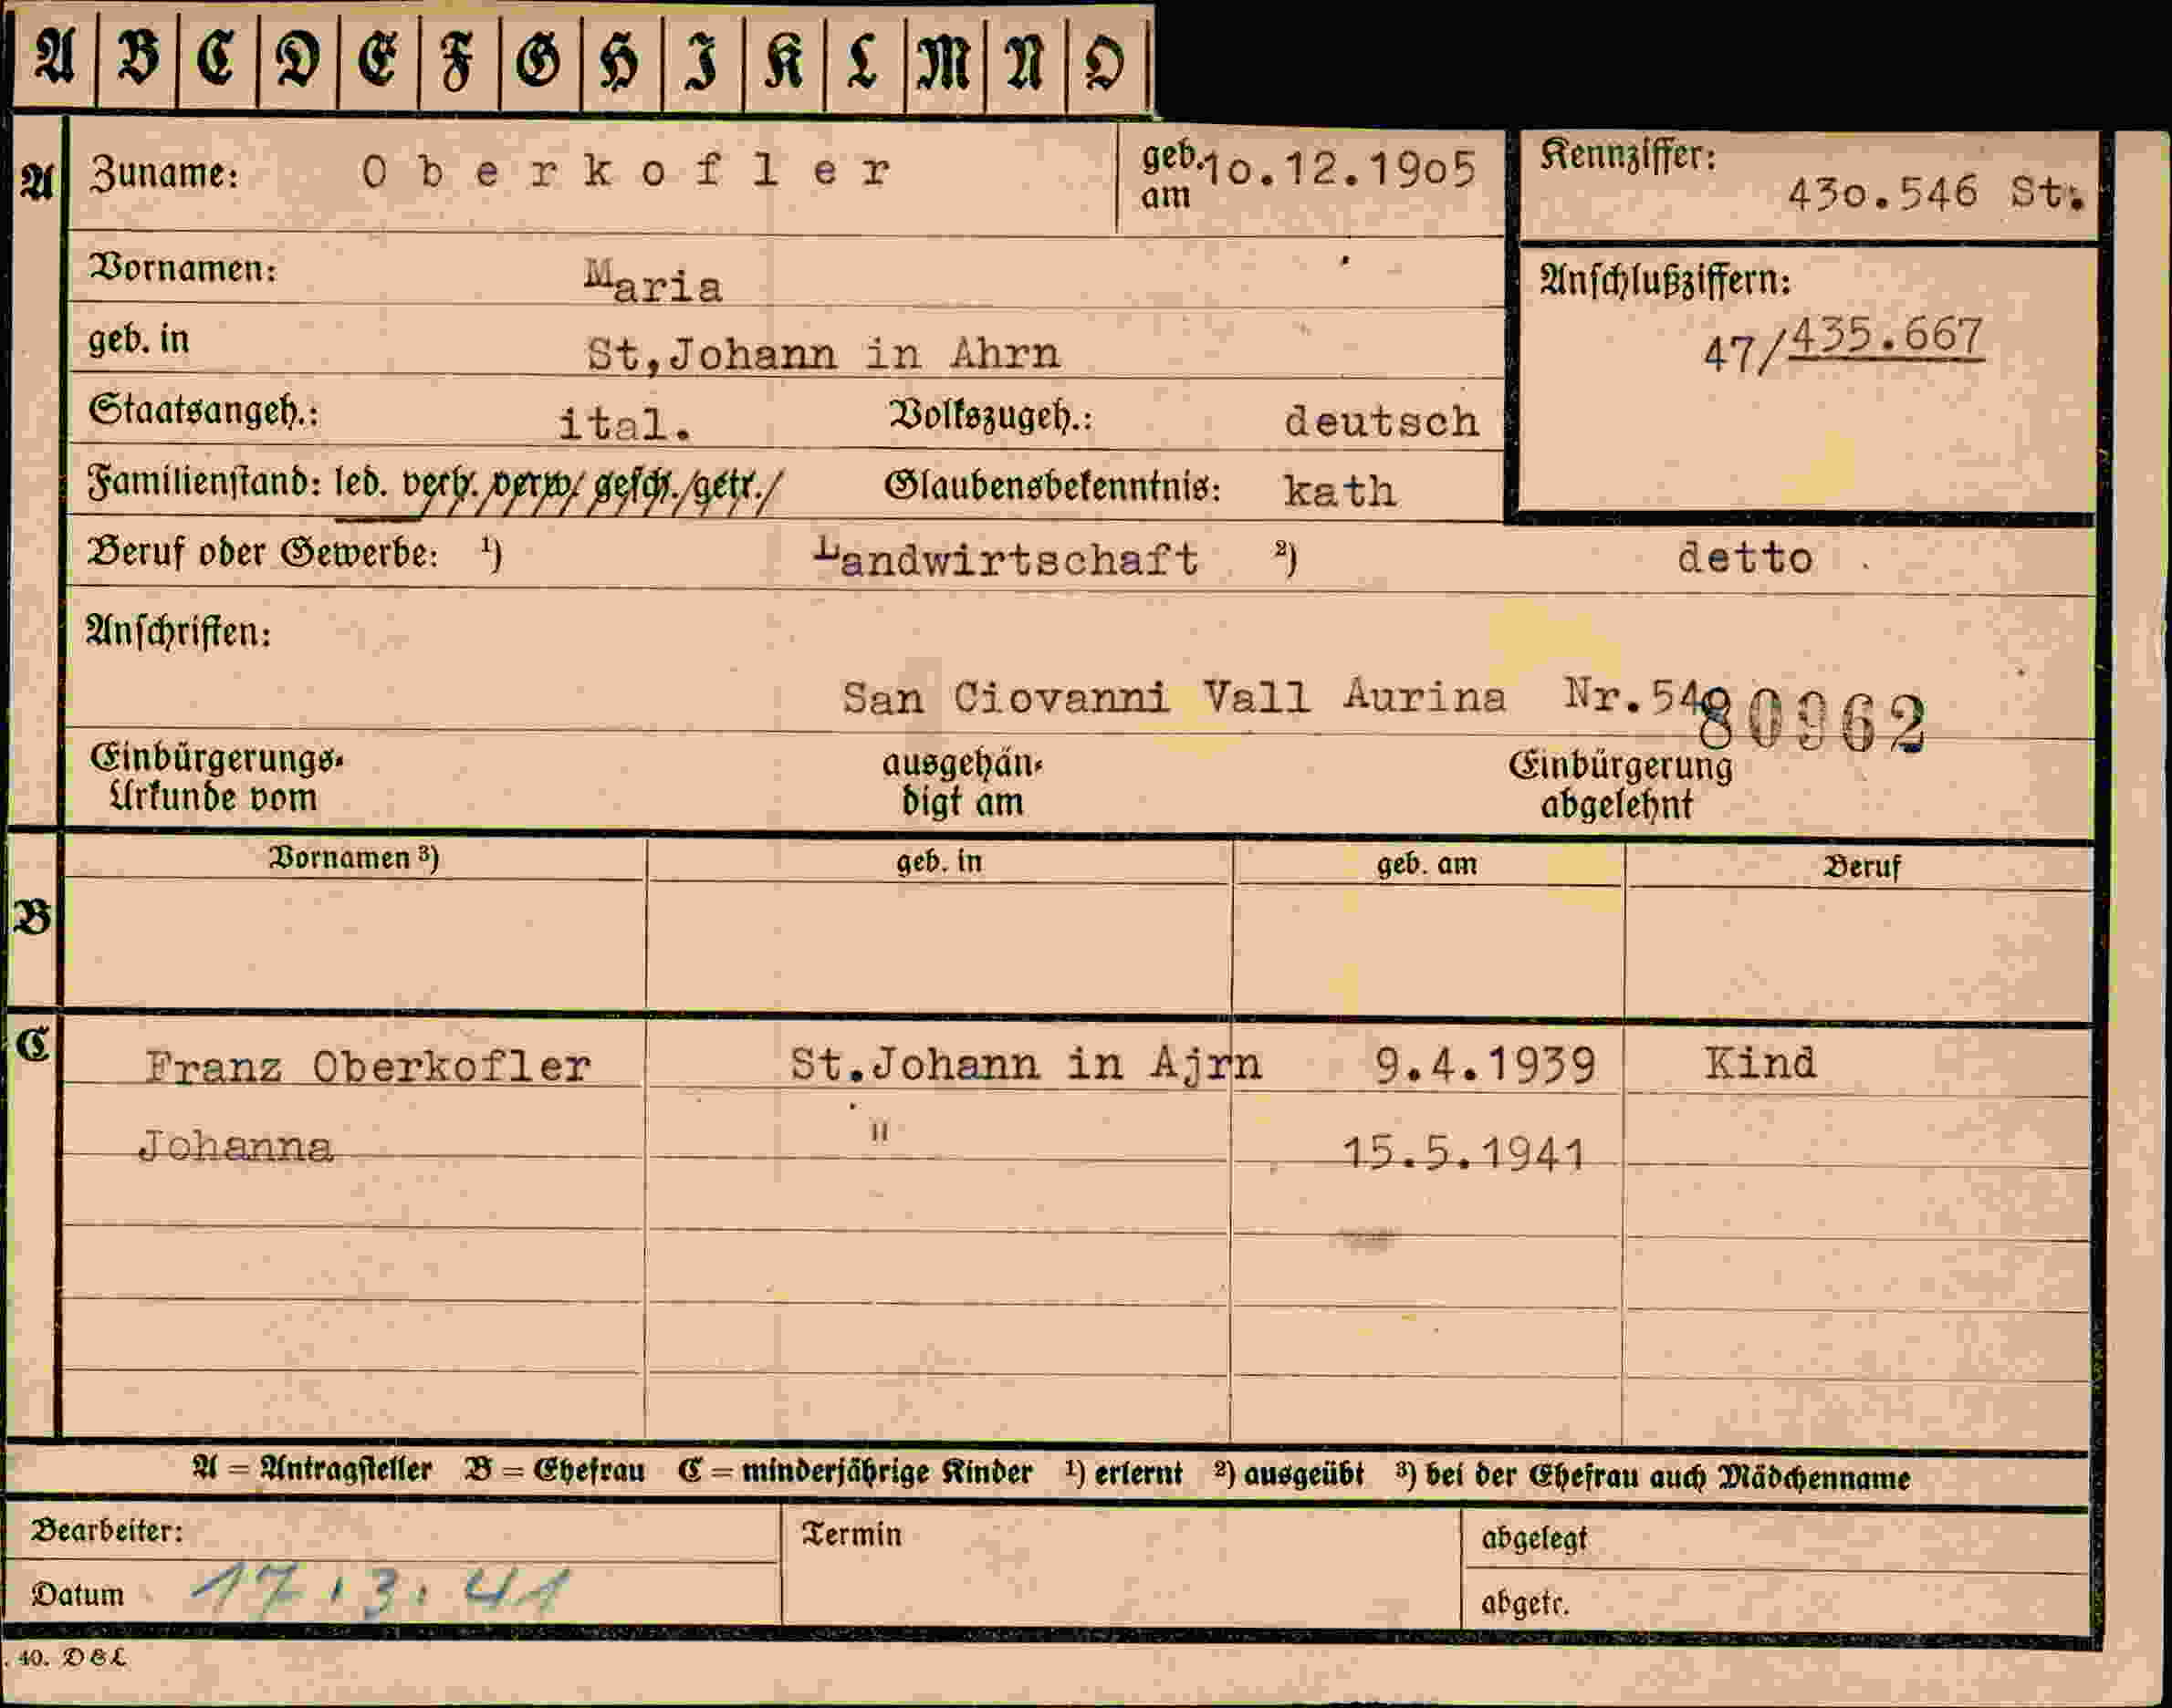 A B C D E F G H I K L M N O
A Zuname: Oberkofler geb. am 10.12.1905 Kennziffer: 430.546 St.
Vornamen: Maria Anschlußziffern:
geb. in St,Johann in Ahrn 47/435.667
Staatsangeh.: ital. Volkszugeh.: deutsch
Familienstand: led. verh. verw. gesch. getr. Glaubensbekenntnis: kath
Beruf oder Gewerbe: ¹) Landwirtschaft ²) detto
Anschriften:
San Ciovanni Vall Aurina Nr.54 80962
Einbürgerungs- ausgehän- Einbürgerung
Urkunde vom digt am abgelehnt
Vornamen ³) geb. in geb. am Beruf
B
C Franz Oberkofler St.Johann in Ajrn 9.4.1939 Kind
Johanna " 15.5.1941
A = Antragsteller B = Ehefrau C = minderjährige Kinder ¹) erlernt ²) ausgeübt ³) bei der Ehefrau auch Mädchenname
Bearbeiter: Termin abgelegt
Datum 17.3.41 abgetr.
40. DEL